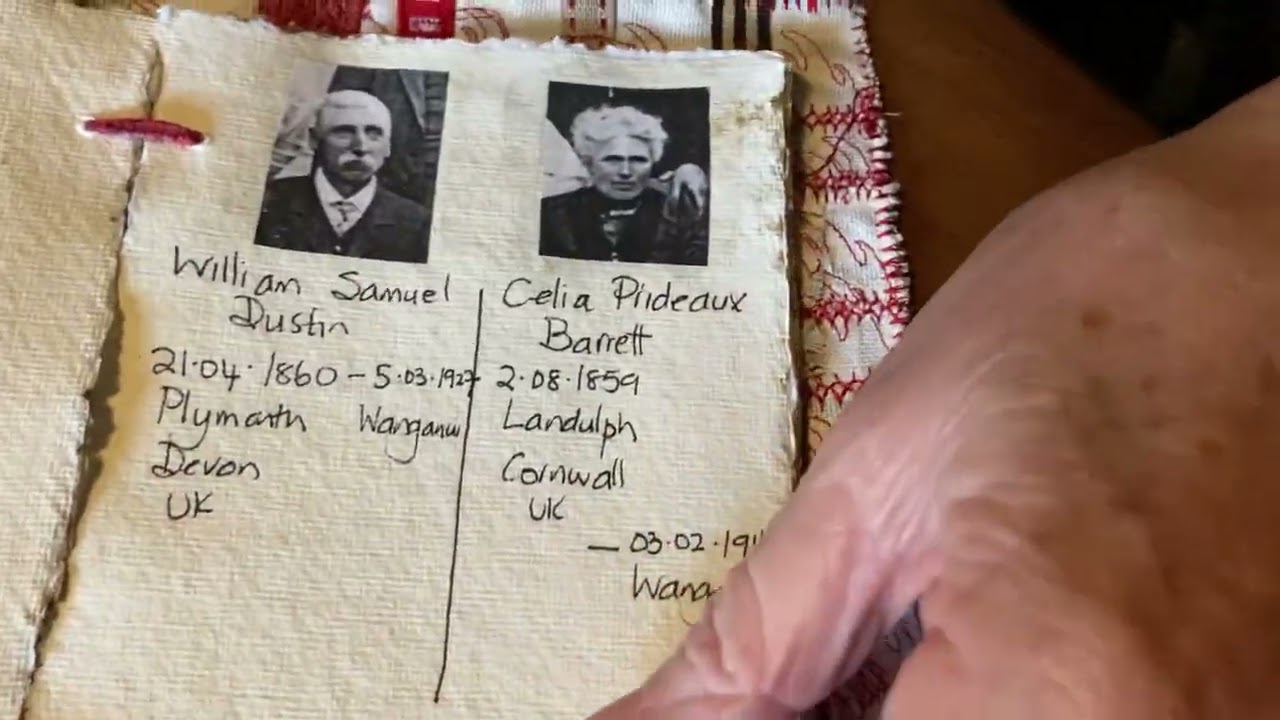 William Samuel
Dustin
21·04·1860 – 5·03·1927
Plymouth Wanganui
Devon
UK
Celia Prideaux
Barrett
2·08·1859
Landulph
Cornwall
UK
— 03·02·191
Wang